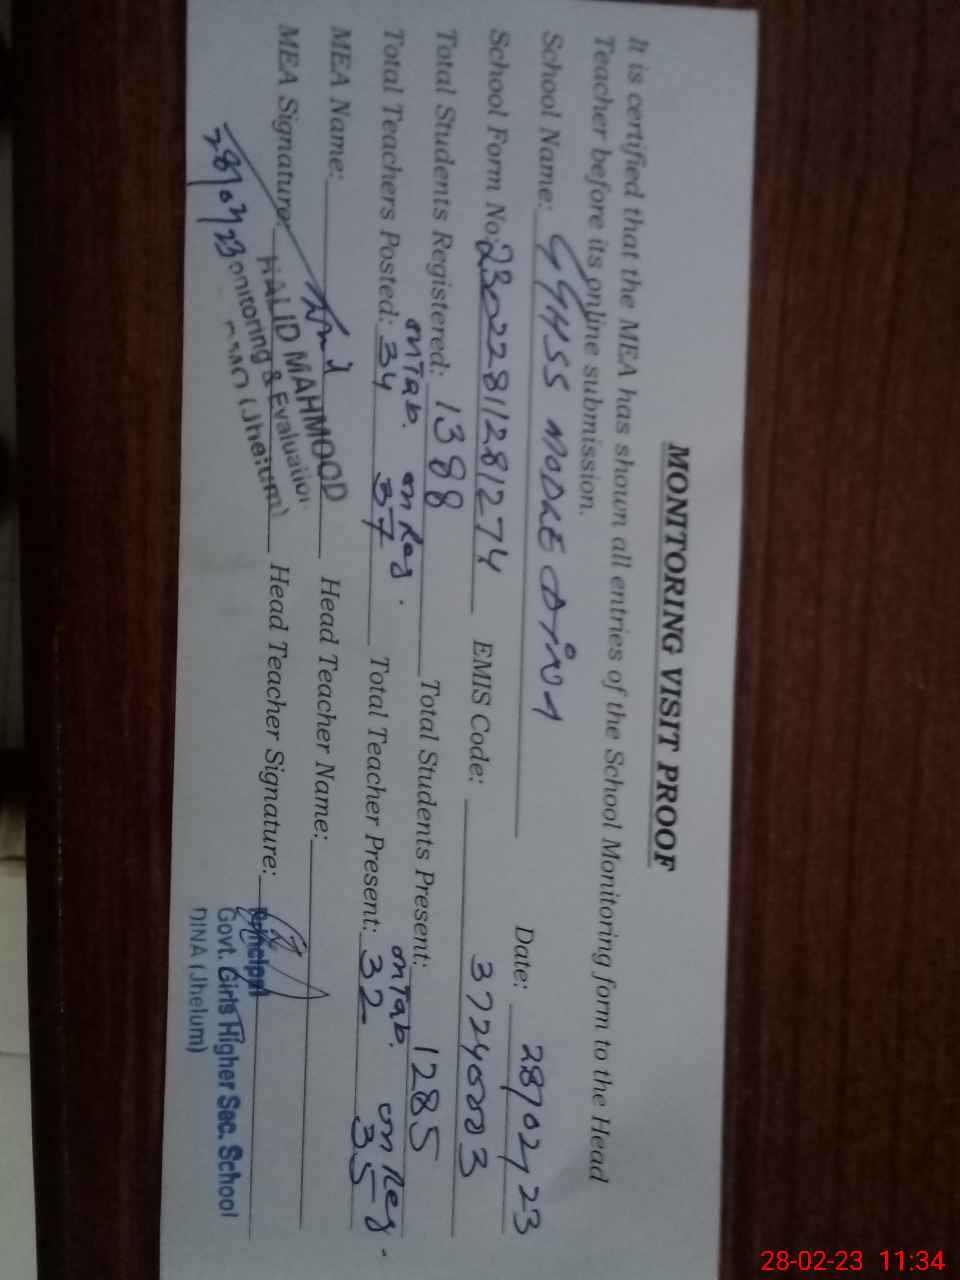 MONITORING VISIT PROOF
It is certified that the MEA has shown all entries of the School Monitoring form to the Head
Teacher before its online submission.
School Name: GGHSS MODLE DINA Date: 28/02/23
School Form No: 23022811281274 EMIS Code: 37240003
Total Students Registered: 1388 Total Students Present: 1285
onTab. on Reg. onTab. on Reg.
Total Teachers Posted: 34 37 Total Teacher Present: 32 35
MEA Name: Head Teacher Name:
MEA Signature: Head Teacher Signature:
KHALID MAHMOOD
Monitoring & Evaluation
(Jhelum)
28/02/23
Principal
Govt. Girls Higher Sec. School
DINA (Jhelum)
28-02-23 11:34